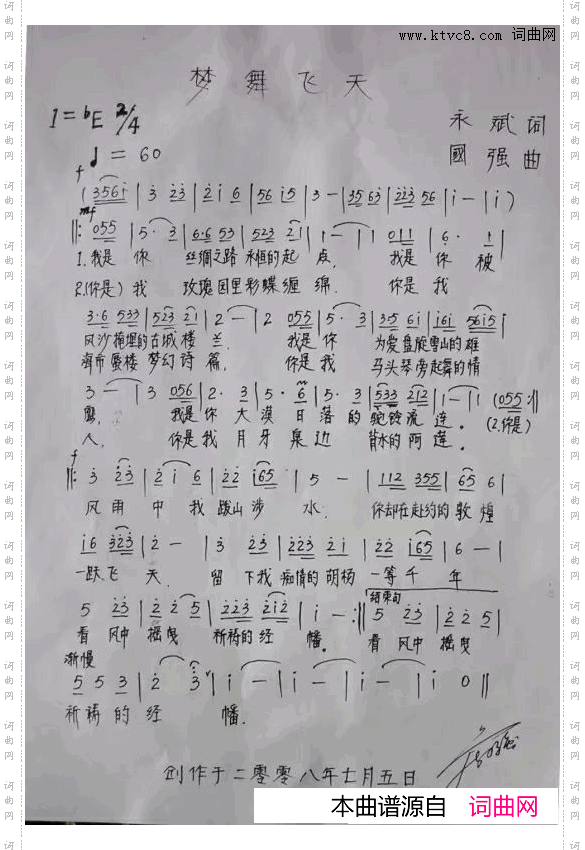 www.ktvc8.com 词曲网
梦舞飞天
1=bE 2/4
永斌词
♩=60
國强曲
f
(3561̇ | 3̇ 2̇3̇ | 2̇1̇ 6 | 56 1̇5 | 3 - | 35 63 | 2̇2̇3̇ 56 | 1̇ - | 1̇)
mf
‖: 055 | 5· 3 | 6·6 53 | 523 21 | 1 - | 1 011 | 6· 1 |
1.我是 你 丝绸之路 永恒的起 点. 我是 你 被
2.(你是)我 玫瑰园里彩蝶缠 绵. 你是 我
3·6 533 | 523 21 | 2 - | 2 055 | 5· 3 | 35 61̇ | 1̇61̇ 5615 |
风沙掩埋的古城楼 兰. 我是你 为爱盘旋雪山的雄
海市蜃楼 梦幻诗 篇. 你是我 马头琴旁起舞的情
3 - | 3 056 | 2· 3 | 5· 6 | 5· 3 | 533 212 | 1 - | 1 (055 :‖
鹰. 我是你 大漠 日落 的驼铃流 连。 (2.你是)
人. 你是我 月牙 泉边 背水的 阿莲。
f
‖: 3̇ 2̇3̇ | 2̇ 1̇ 6 | 2̇2̇ 1̇65 | 5 - | 112 355 | 65 6 |
风雨 中 我 跋山涉 水. 你却在赴约的敦 煌
1̇6 3̇2̇3̇ | 2̇ - | 3̇ 2̇3̇ | 2̇2̇3̇ 2̇1̇ | 2̇2̇ 1̇65 | 6 - |
一跃飞 天. 留下我 痴情的胡杨 一等千 年
结束句
5 2̇3̇ | 2̇ 2̇ 5 | 2̇2̇3̇ 2̇1̇2̇ | 1̇ - :‖ 5 2̇3̇ | 2̇ 2̇ 5 |
看风中 摇曳 祈祷的经 幡。 看风中 摇曳
渐慢
5 5 3̇ | 2̇ 3̇ ˅| 1̇ - | 1̇ - | 1̇ - | 1̇ 0 ‖
祈祷的经 幡.
创作于二零零八年七月五日
本曲谱源自 词曲网